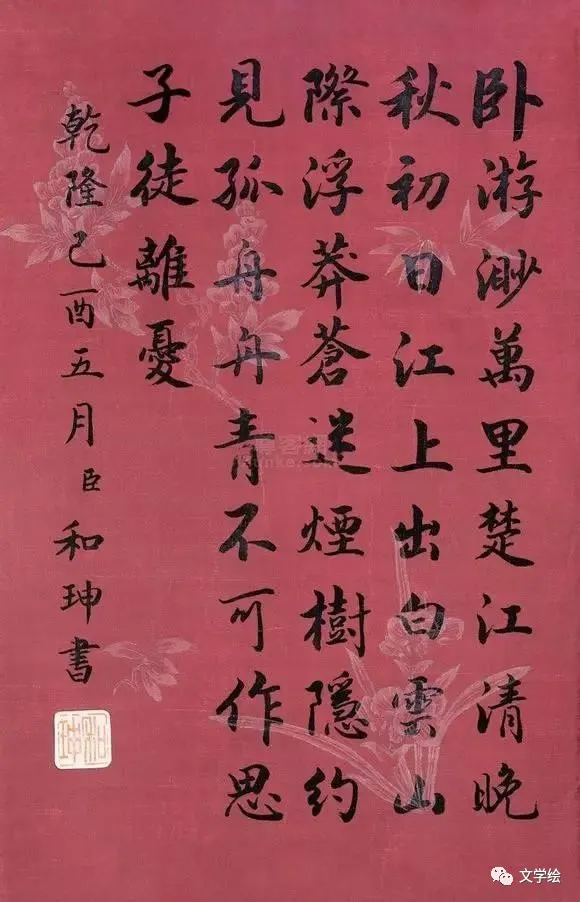 卧游渺萬里楚江清晚
秋初日江上出白雲山
際浮莽蒼迷煙樹隱約
見孤舟舟青不可作思
子徒離憂
乾隆己酉五月臣和珅書
和珅
文学绘